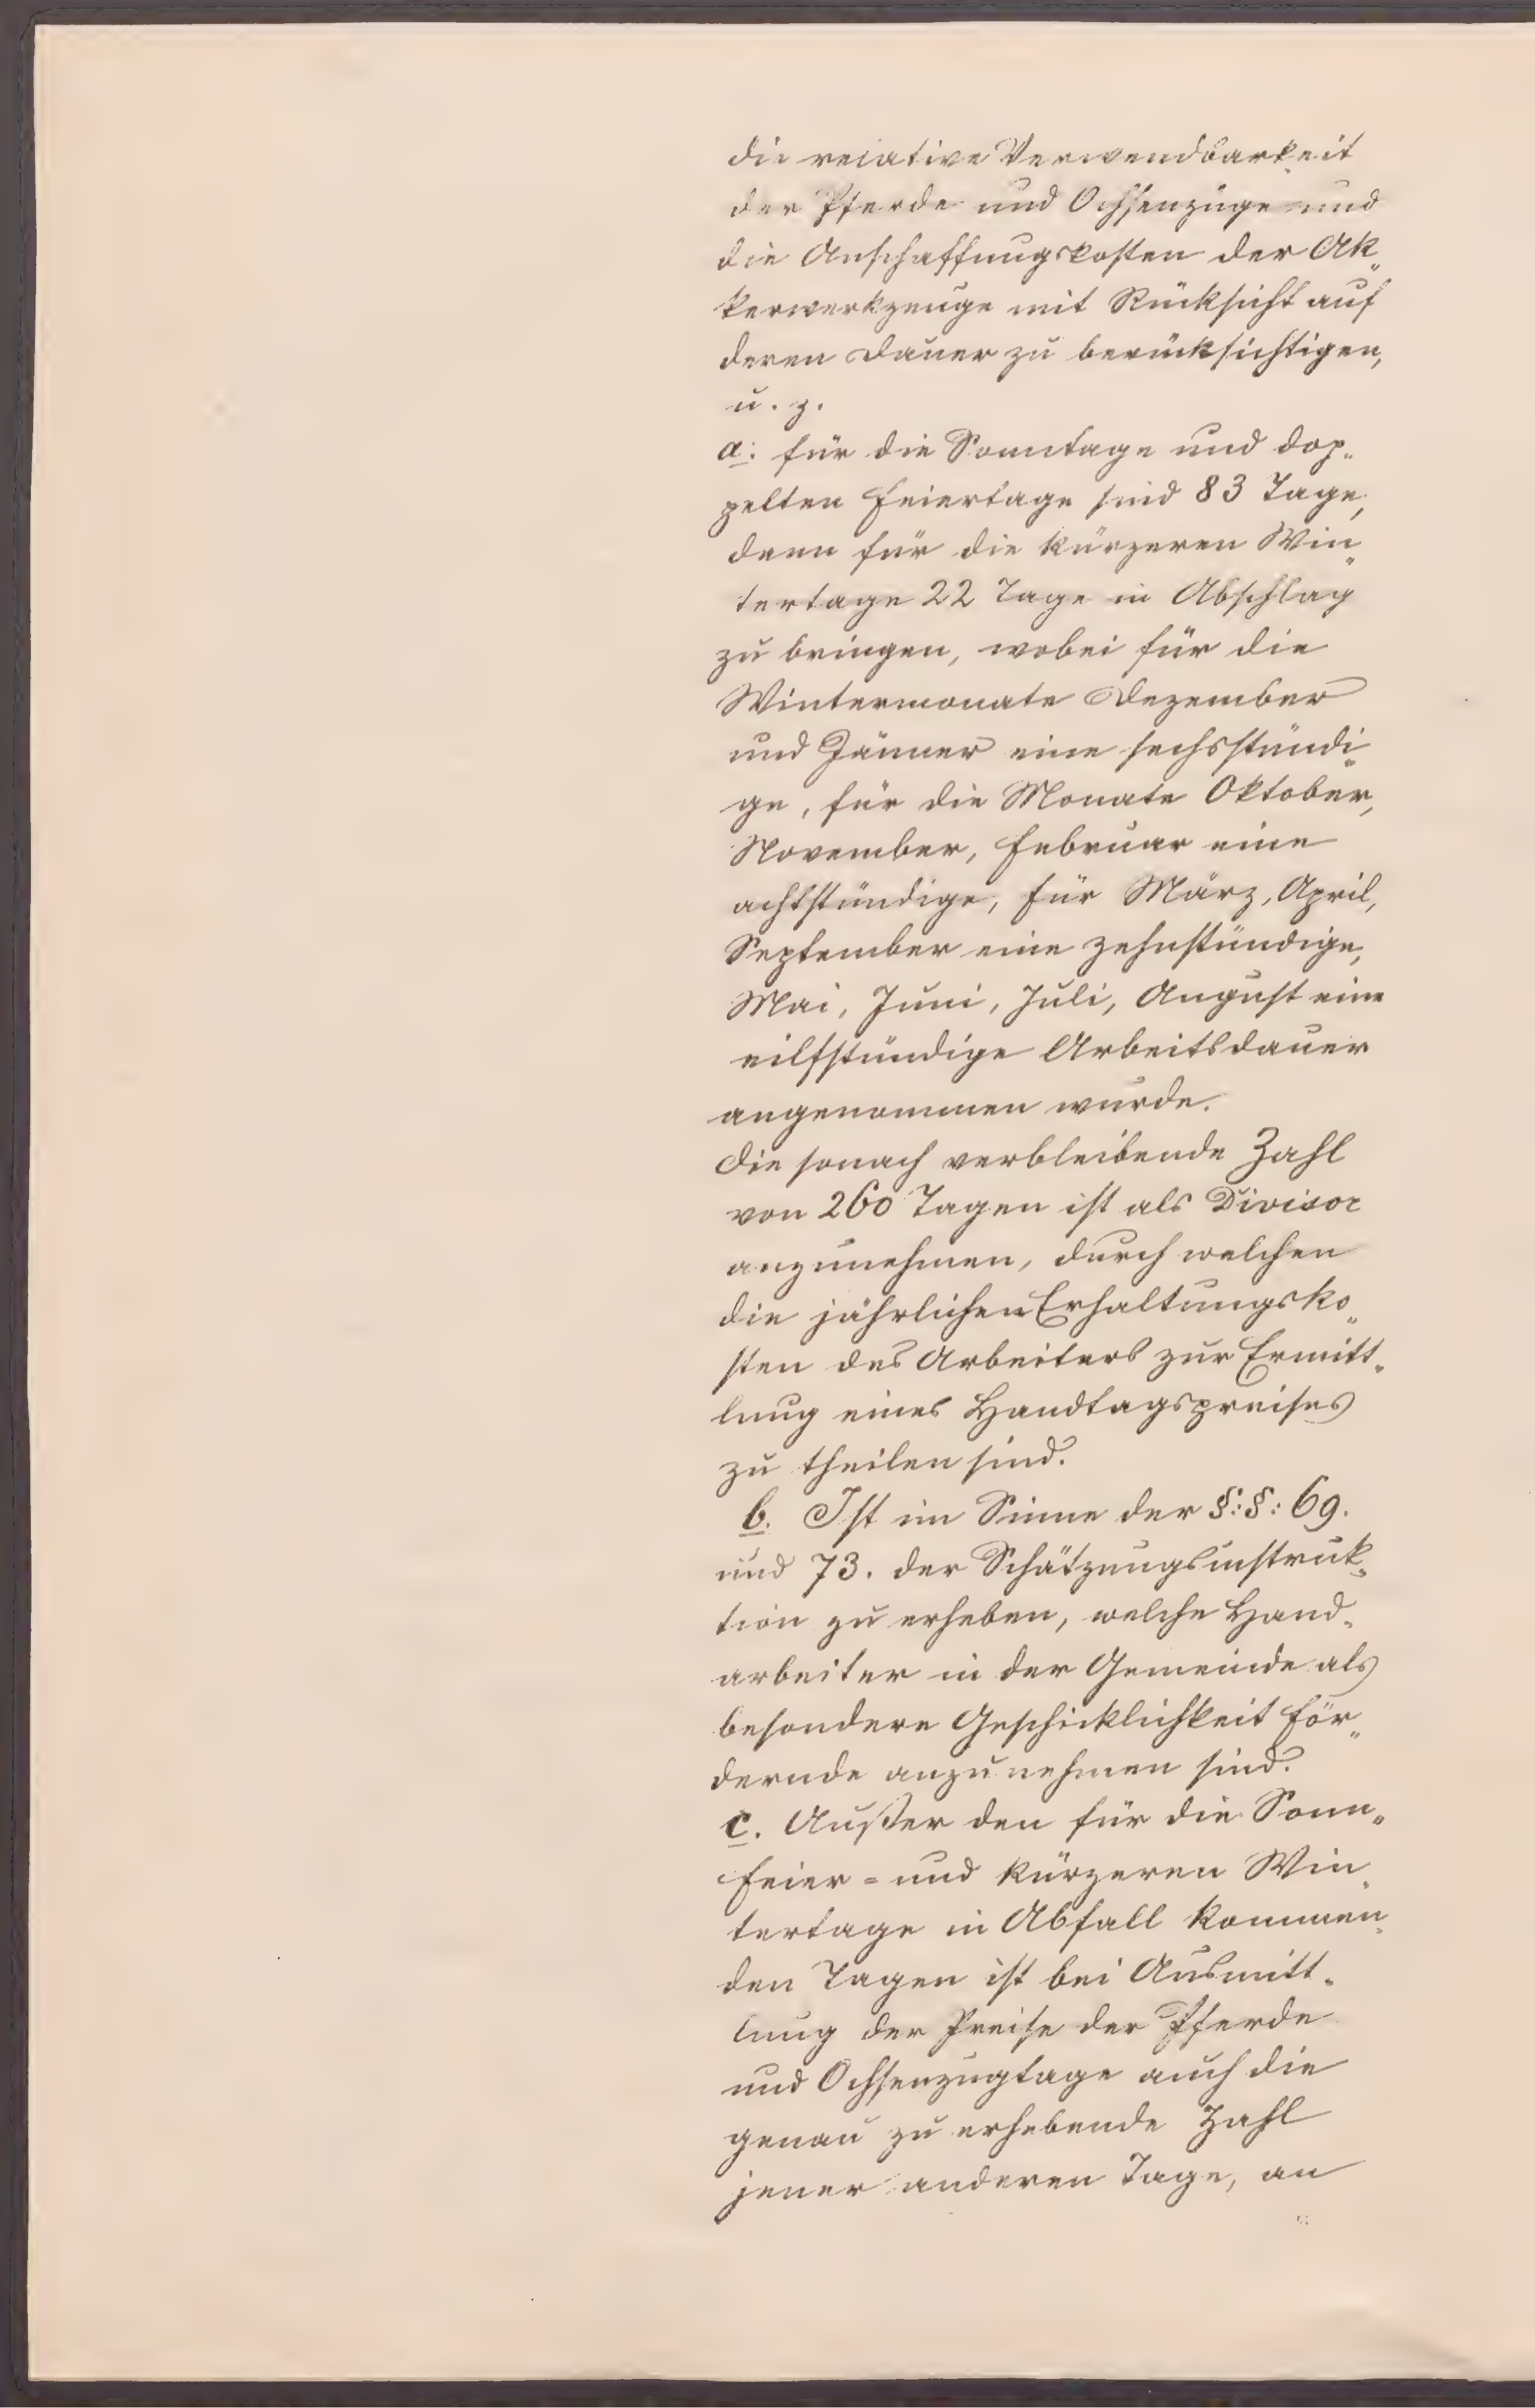 die relative Verwendbarkeit
der Pferde und Ochsenzüge und
die Anschaffungskosten der Ak„
kerwerkzeuge mit Rücksicht auf
deren Dauer zu berücksichtigen,
u. z.
a: für die Sonntage und dop„
pelten Feiertage sind 83 Tage,
dann für die kürzeren Win„
tertage 22 Tage in Abschlag
zu bringen, wobei für die
Wintermonate Dezember
und Jänner eine sechsstündi„
ge, für die Monate Oktober,
November, Februar eine
achtstündige, für März, April,
September eine zehnstündige,
Mai, Juni, Juli, August eine
eilfstündige Arbeitsdauer
angenommen wurde.
Die sonach verbleibende Zahl
von 260 Tagen ist als Divisor
anzunehmen, durch welchen
die jährlichen Erhaltungsko„
sten des Arbeiters zur Ermitt„
lung eines Handtagspreises
zu theilen sind.
b. Ist im Sinne der §:§: 69.
und 73. der Schätzungsinstruk„
tion zu erheben, welche Hand„
arbeiter in der Gemeinde als
besondere Geschicklichkeit för„
dernde anzunehmen sind.
c. Außer den für die Sonn„
Feier= und kürzeren Win„
tertage in Abfall kommen„
den Tagen ist bei Ausmitt„
lung der Preise der Pferde
und Ochsenzugtage auch die
genau zu erhebende Zahl
jener anderen Tage, an